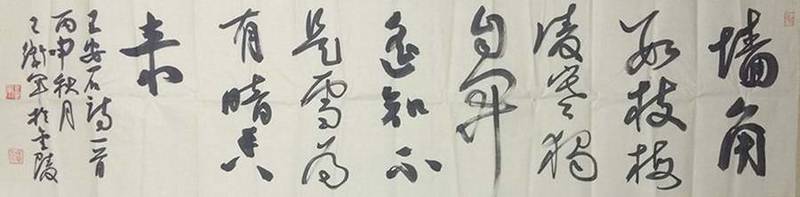 墙角
数枝梅
凌寒独
自开
遥知不
是雪为
有暗香
来
王安石诗一首
丙申秋月